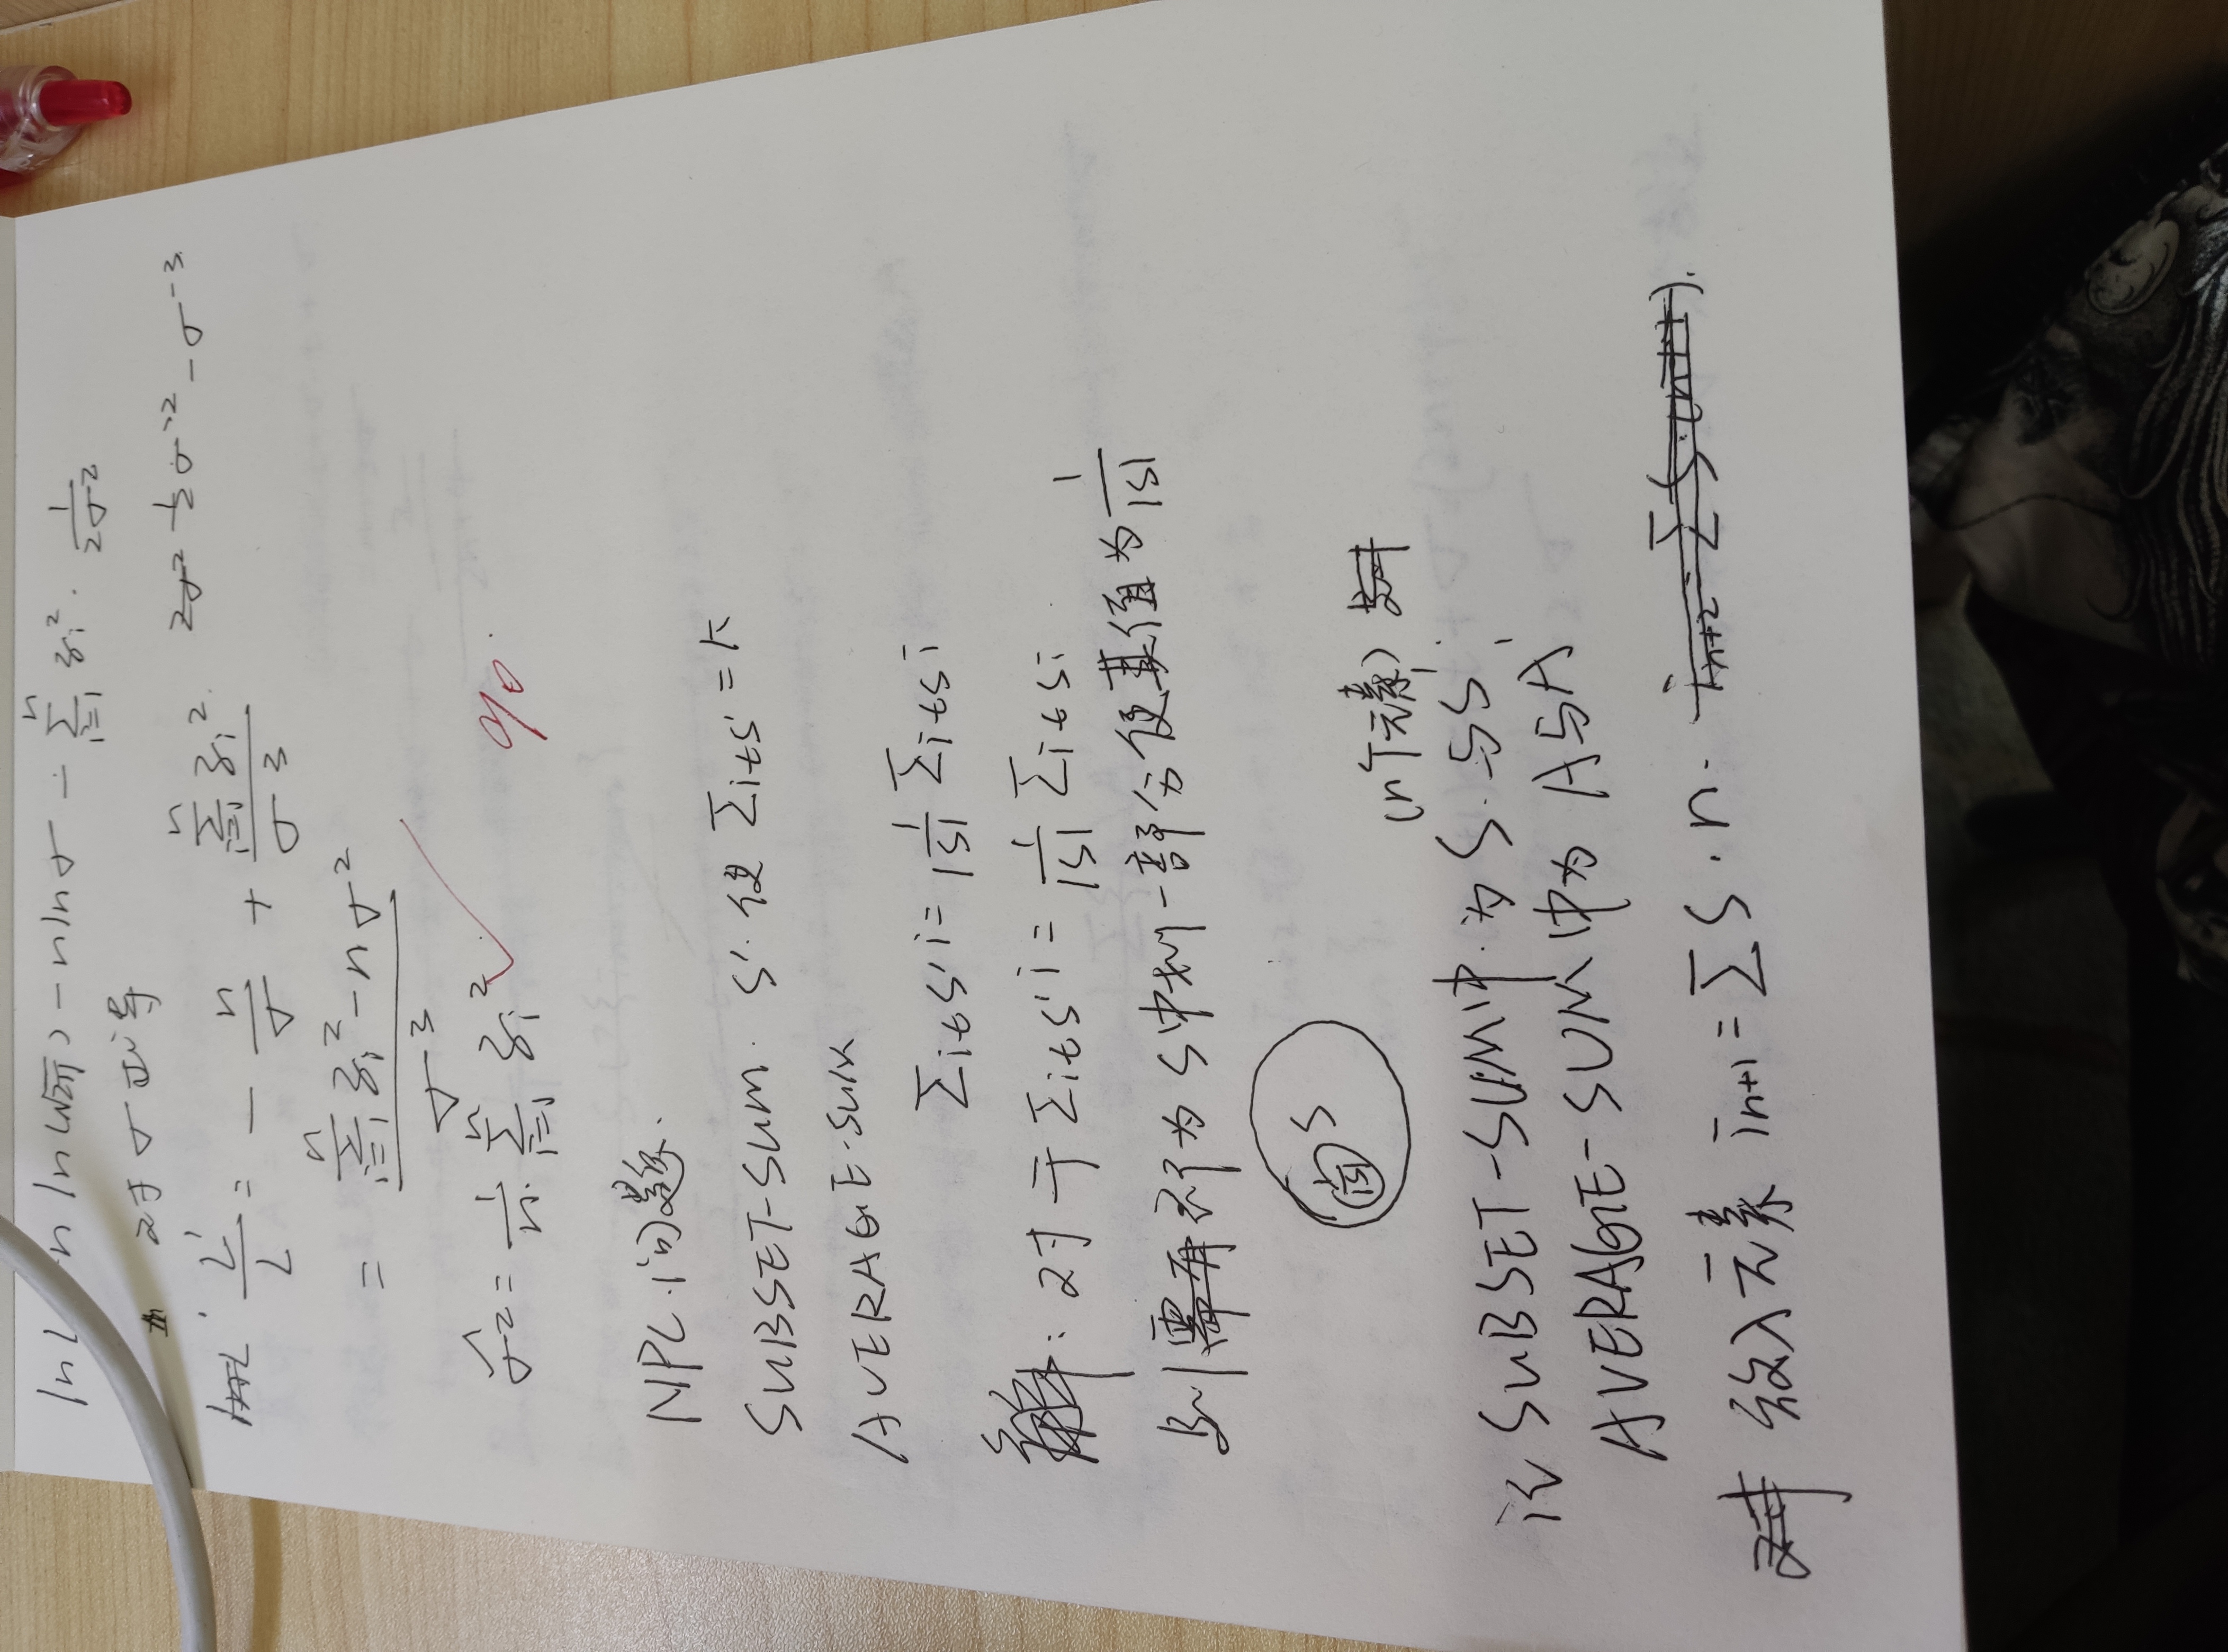 ln L n ln(√2π) - n ln σ - Σ_{i=1}^{n} z_i² · 1/(2σ²)
对 σ 求导
L'/L = - n/σ + Σ_{i=1}^{n} z_i² / σ³ 2σ² 1/2 σ⁻² - σ⁻³
= (Σ_{i=1}^{n} z_i² - nσ²) / σ³
σ̂² = 1/n · Σ_{i=1}^{n} z_i²
NPC 问题.
SUBSET-SUM. S' 使 Σi∈S' = k
AVERAGE-SUM
Σi∈S' i = 1/|S| Σi∈S i
解: 对于 Σi∈S' i = 1/|S| Σi∈S i
则需有 即为 S中划一部分使其值为 1/|S|
1/|S| S
(n个元素) 对
记 SUBSET-SUM中.为 S.与S'
AVERAGE-SUM中为 A与A'
对 放入元素 i_{n+1} = ΣS·n. i_{n+2} = ΣS·(n+1).